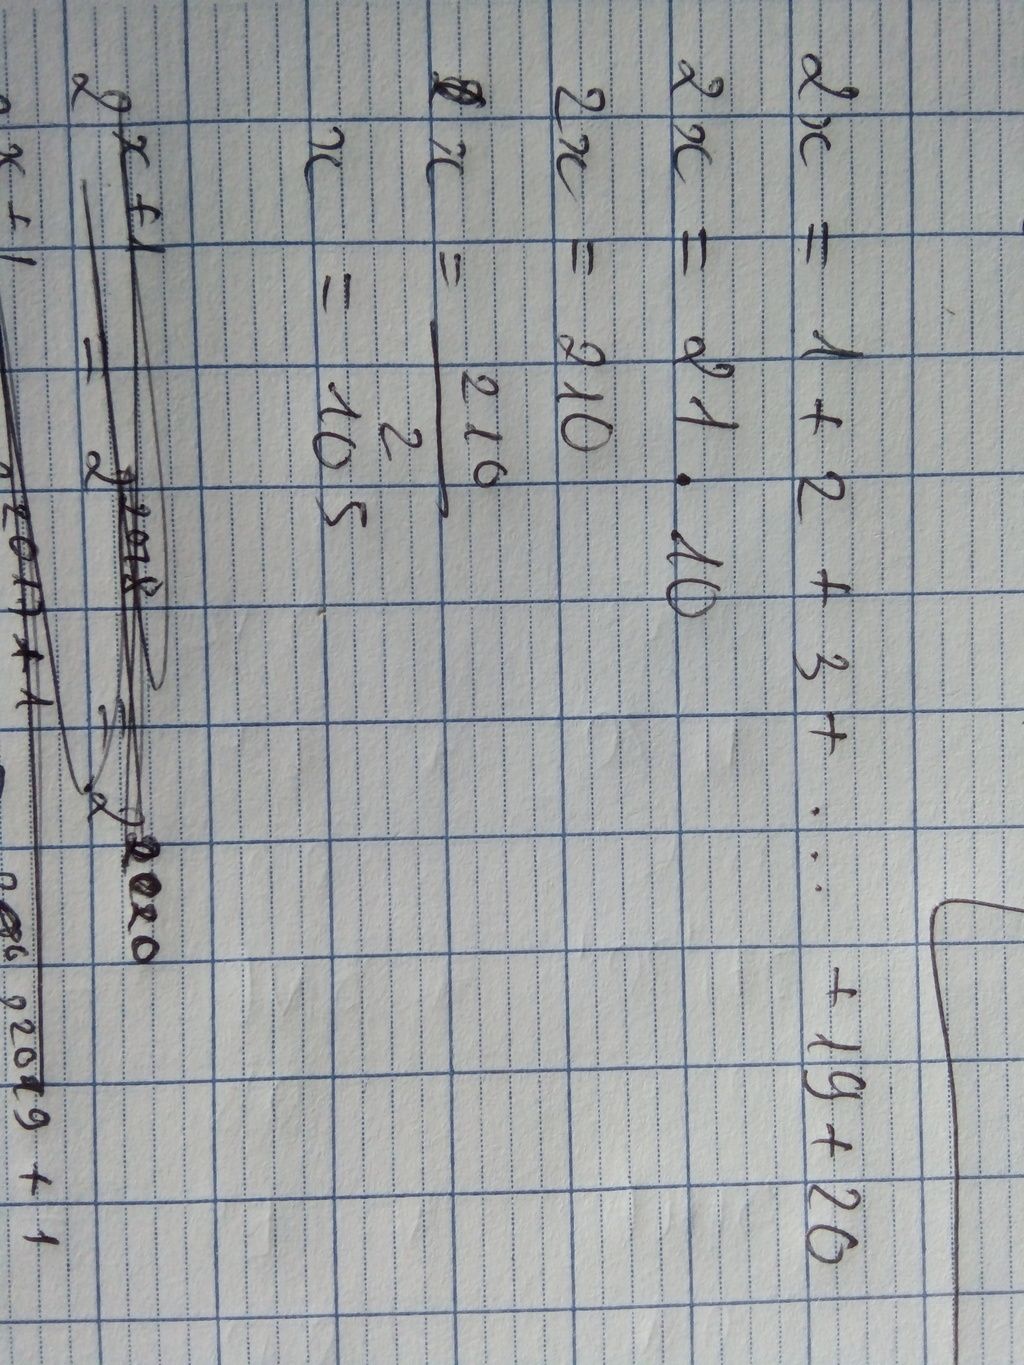 2x = 1 + 2 + 3 + ... + 19 + 20
2x = 21 . 10
2x = 210
x = 210 / 2
x = 105
2^x+1 = 2^2018 - 2^2020
x + 1
2017 + 1
2019 + 1